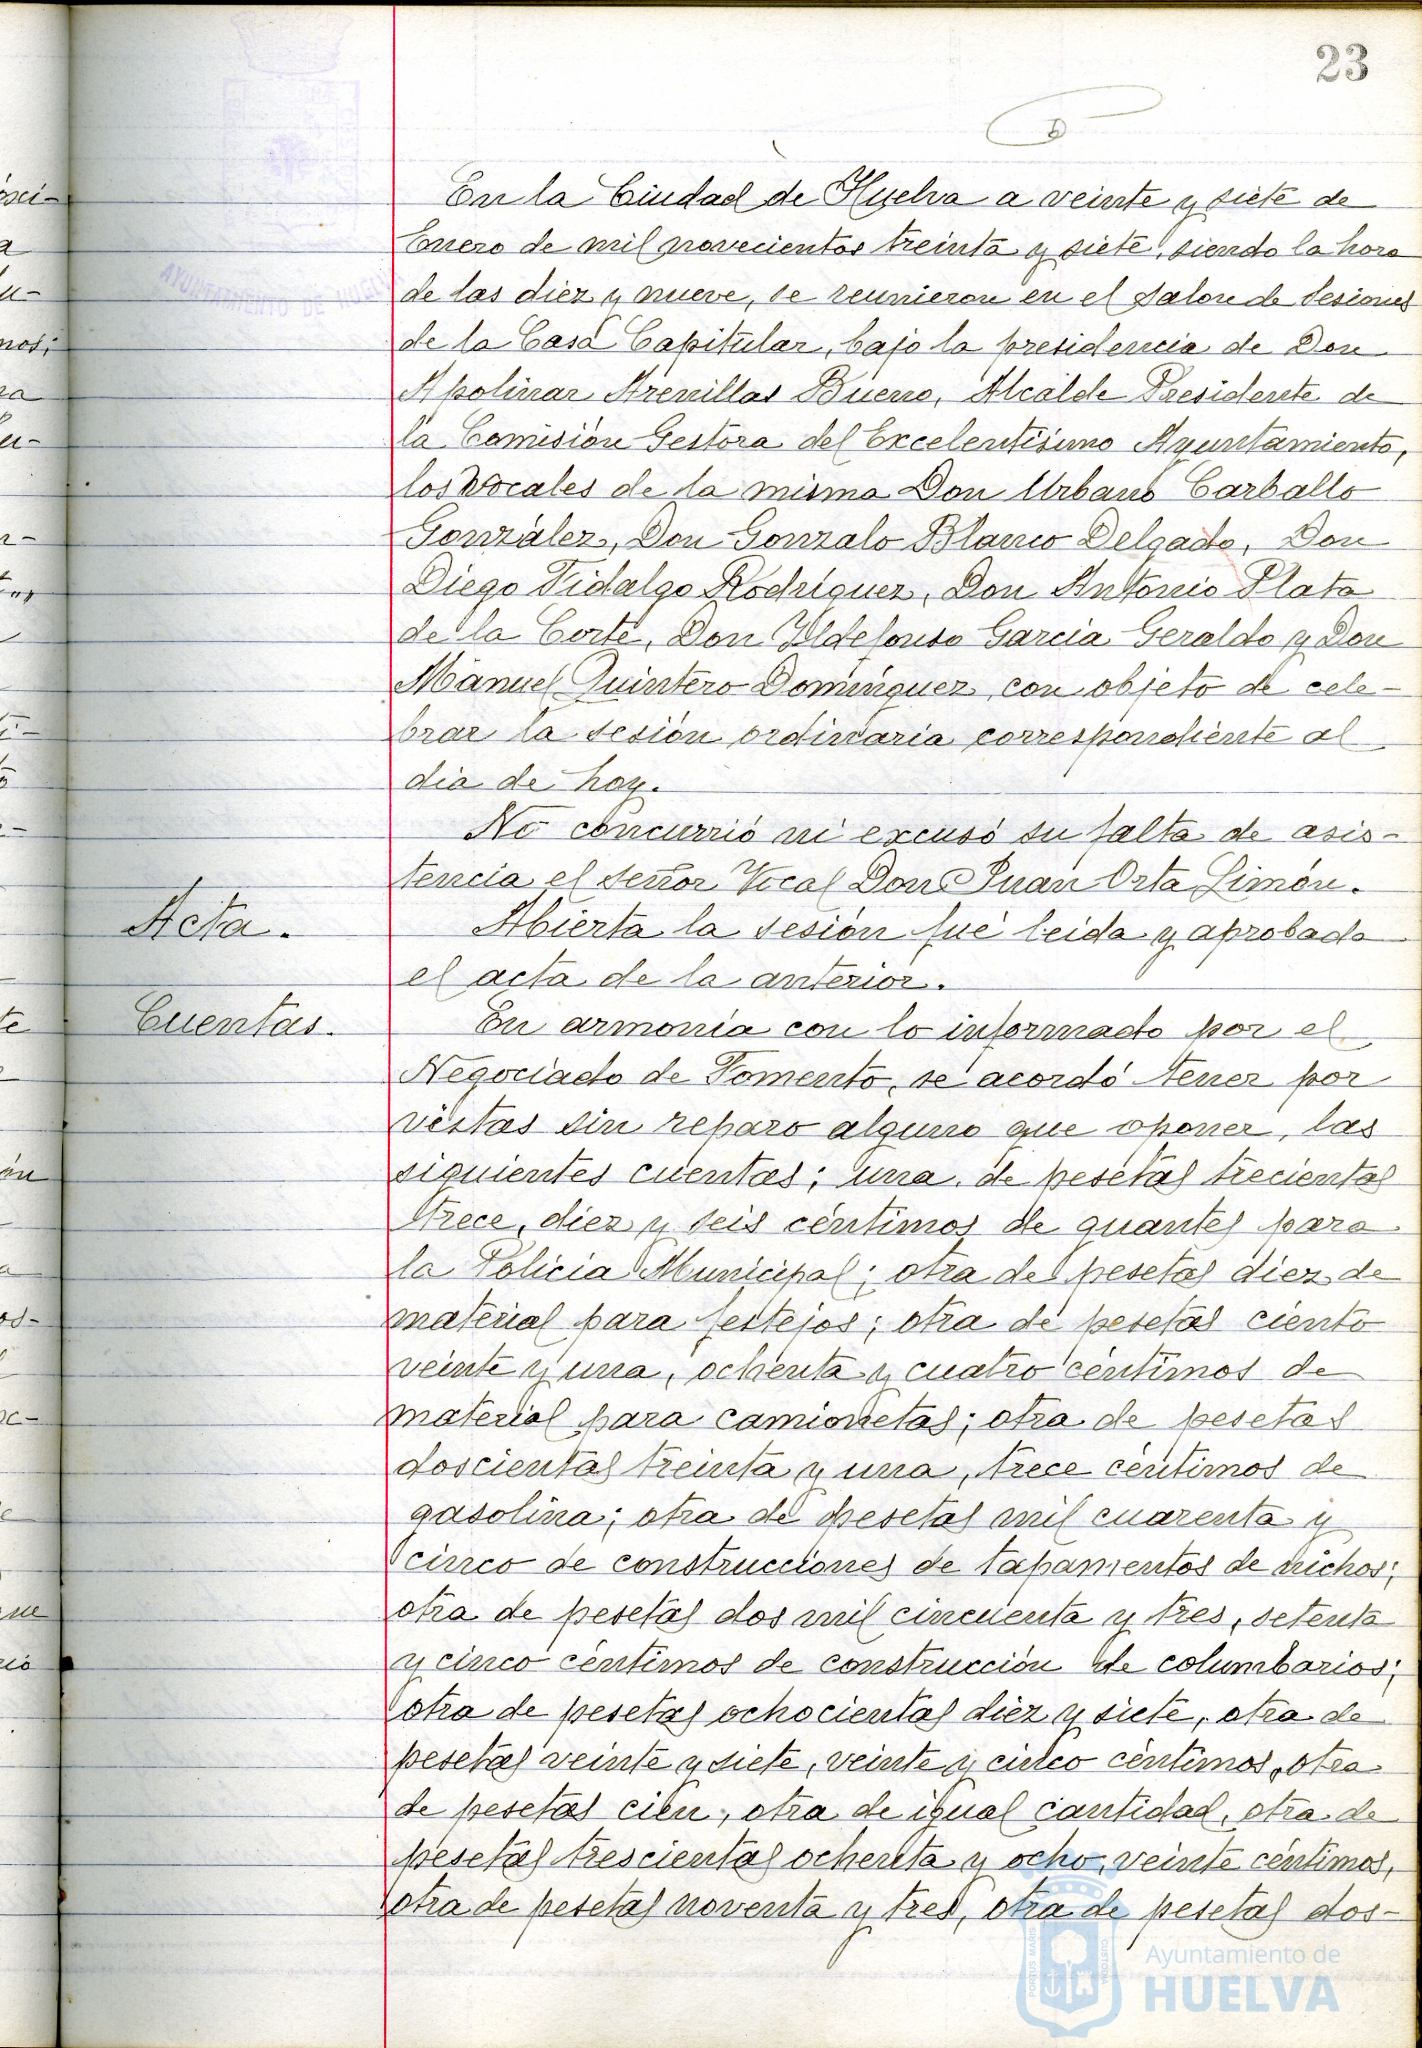 23
En la Ciudad de Huelva a veinte y siete de
Enero de mil novecientos treinta y siete, siendo la hora
de las diez y nueve, se reunieron en el Salon de Sesiones
de la Casa Capitular, bajo la presidencia de Don
Apolinar Arenillas Bueno, Alcalde Presidente de
la Comisión Gestora del Excelentísimo Ayuntamiento,
los Vocales de la misma Don Urbano Carballo
González, Don Gonzalo Blanco Delgado, Don
Diego Fidalgo Rodríguez, Don Antonio Plata
de la Corte, Don Ildefonso García Geraldo y Don
Manuel Quintero Domínguez, con objeto de cele-
brar la sesión ordinaria correspondiente al
dia de hoy.
No concurrió ni excusó su falta de asis-
tencia el Señor Vocal Don Juan Orta Limón.
Acta.
Abierta la sesión fué leida y aprobada
el acta de la anterior.
Cuentas.
En armonía con lo informado por el
Negociado de Fomento, se acordó tener por
vistas sin reparo alguno que oponer, las
siguientes cuentas; una de pesetas trecientas
trece, diez y seis céntimos de guantes para
la Policia Municipal; otra de pesetas diez de
material para festejos; otra de pesetas ciento
veinte y una, ochenta y cuatro céntimos de
material para camionetas; otra de pesetas
doscientas treinta y una, trece céntimos de
gasolina; otra de pesetas mil cuarenta y
cinco de construcciones de tapamentos de nichos;
otra de pesetas dos mil cincuenta y tres, setenta
y cinco céntimos de construcción de columbarios;
otra de pesetas ochocientas diez y siete, otra de
pesetas veinte y siete, veinte y cinco céntimos, otra
de pesetas cien, otra de igual cantidad, otra de
pesetas trescientas ochenta y ocho, veinte céntimos,
otra de pesetas noventa y tres, otra de pesetas dos-
AYUNTAMIENTO DE HUELVA
Ayuntamiento de
HUELVA